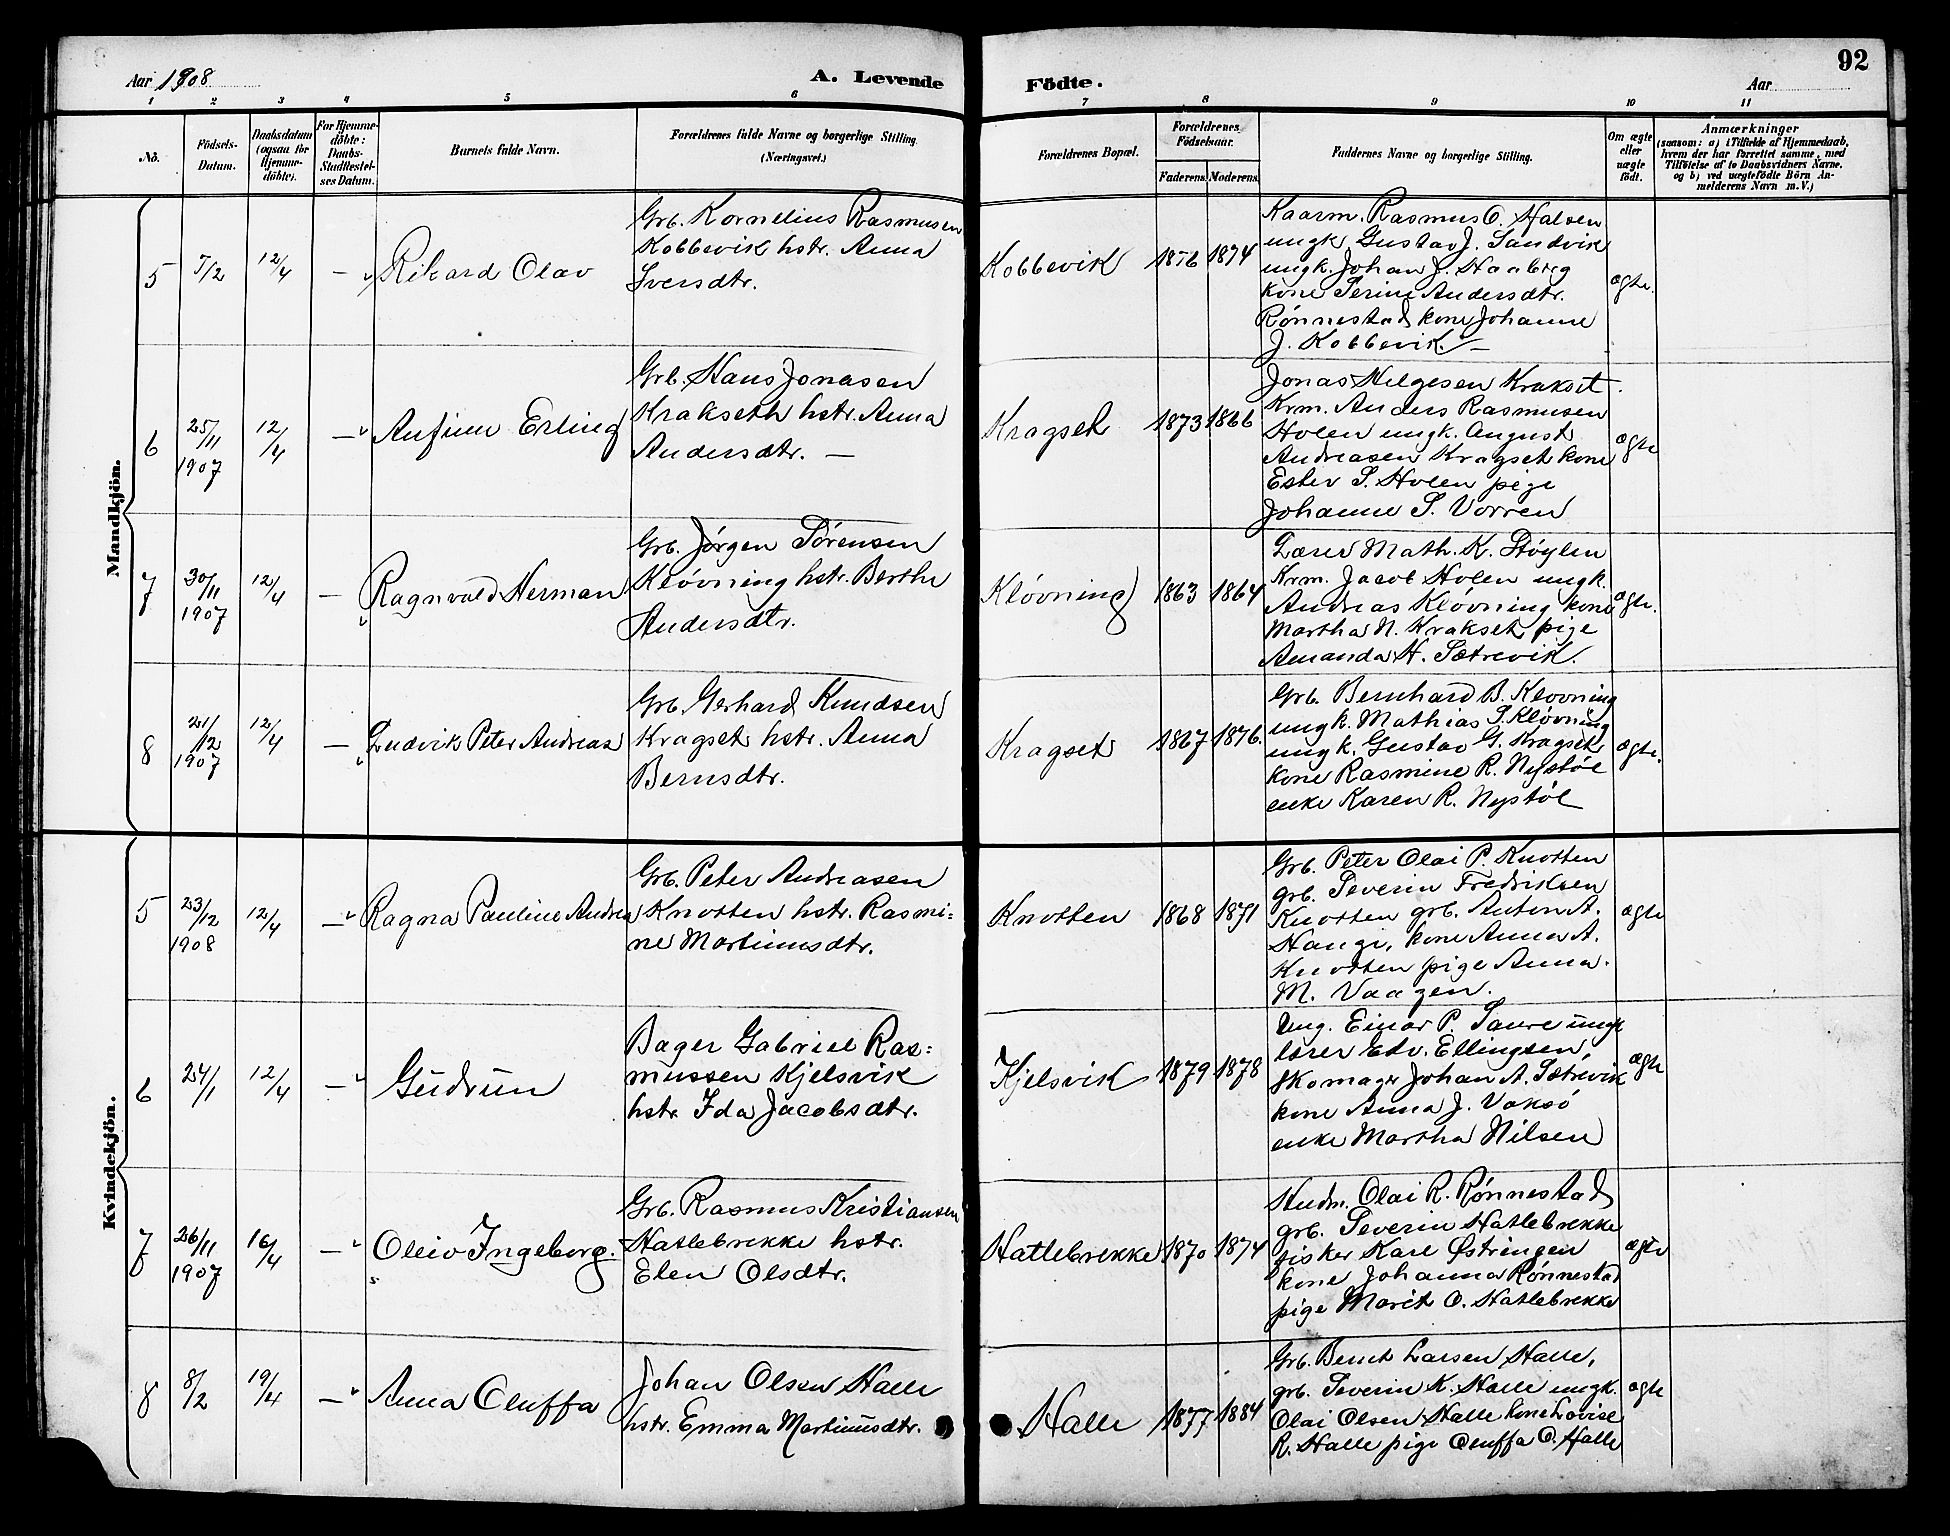 Aar 1908
A. Levende
Födte.
Aar
92
1 2 3 4 5 6 7 8 9 10 11
No.
Födsels-Datum.
Daabsdatum (ogsaa for Hjemme-döbte).
For Hjemme-döbte: Daabs-Stadfæstel-ses Datum.
Barnets fulde Navn.
Forældrenes fulde Navne og borgerlige Stilling.
(Næringsvei.)
Forældrenes Bopæl.
Forældrenes Födselsaar.
Faderens. Moderens.
Faddernes Navne og borgerlige Stilling.
Om ægte eller uægte födt.
Anmærkninger
(saasom: a) i Tilfælde af Hjemmedaab, hvem der har forrettet samme, med Tilföielse af to Daabsvidners Navne. og b) ved uægtefödte Börn An-melderens Navn m. V.)
Mandkjön.
5
5/2
12/4
—
Rikard Olav
Grb. Kornelius Rasmusen
Kobbevik hstr. Anna
Iversdtr.
Kobbevik
1876
1874
Kaarm. Rasmus O. Halsen
ungk. Gustav J. Sandvik
ungk. Johan J. Haaberg
kone Serine Andersdtr.
Rönnestad kone Johanne
J. Kobbevik. —
ægte.
6
25/11
1907
12/4
—
Anfinn Erling
Grb. Hans Jonasen
Krakseth hstr. Anna
Andersdtr. —
Kragset
1873
1866
Jonas Helgesen Krakset.
Krm. Anders Rasmusen
Holen ungk. August
Andreasen Kragset kone
Ester S. Holen pige
Johanne S. Vorren
ægte
7
30/11
1907
12/4
—
Ragnvald Herman
Grb. Jörgen Sörensen
Klövning hstr. Berthe
Andersdtr.
Klövning
1863
1864
Lærer Math. K. Stöylen
Krm. Jacob Holen ungk.
Andreas Klövning kone
Martha N. Krakset, pige
Amanda H. Sætrevik.
ægte.
8
21/12
1907
12/4
—
Ludvik Peter Andreas
Grb. Gerhard Knudsen
Kragset hstr. Anna
Bernsdtr.
Kragset
1867
1876.
Grb. Bernhard B. Klovning
ungk. Mathias S. Klövning
ungk. Gustav G. Kragset
kone Rasmine R. Nystöl
enke Karen R. Nystöl
ægte.
Kvindekjön.
5
23/12
1908
12/4
—
Ragna Pauline Andrea
Grb. Peter Andreasen
Knotten hstr. Rasmi=
ne Martinusdtr.
Knotten
1868
1871
Grb. Peter Olai P. Knotten
grb. Severin Fredriksen
Knotten grb. Anton A.
Hauge, kone Anna A.
Knotten pige Anna
M. Vaagen.
ægte
6
24/1
12/4
—
Gudrun
Bager Gabriel Ras=
mussen Kjelsvik
hstr. Ida Jacobsdtr.
Kjelsvik
1879
1878
Ung. Einar P. Saure ungk
lærer Edv. Ellingsen,
Skomager Johan A. Sætrevik
kone Anna J. Vaksö
enke Martha Nilsen
ægte
7
26/11
1907
16/4
—
Oleiv Ingeborg.
Grb. Rasmus Kristiansen
Hatlebrekke hstr.
Elen Olsdtr.
Hatlebrekke
1870
1874
Husm. Olai R. Rönnestad
grb. Severin Hatlebrekke
fisker Karl Østringen
kone Johanna Rönnestad
pige Marit O. Hatlebrekke
ægte
8
8/2
19/4
—
Anna Oluffa
Johan Olsen Halle
hstr. Emma Martinusdtr.
Halle
1877
1884
Grb. Bernt Larsen Halle,
grb. Severin K. Halle ungk.
Olai Olsen Halle kone Lovise
R. Halle pige Oluffa O. Halle
ægte